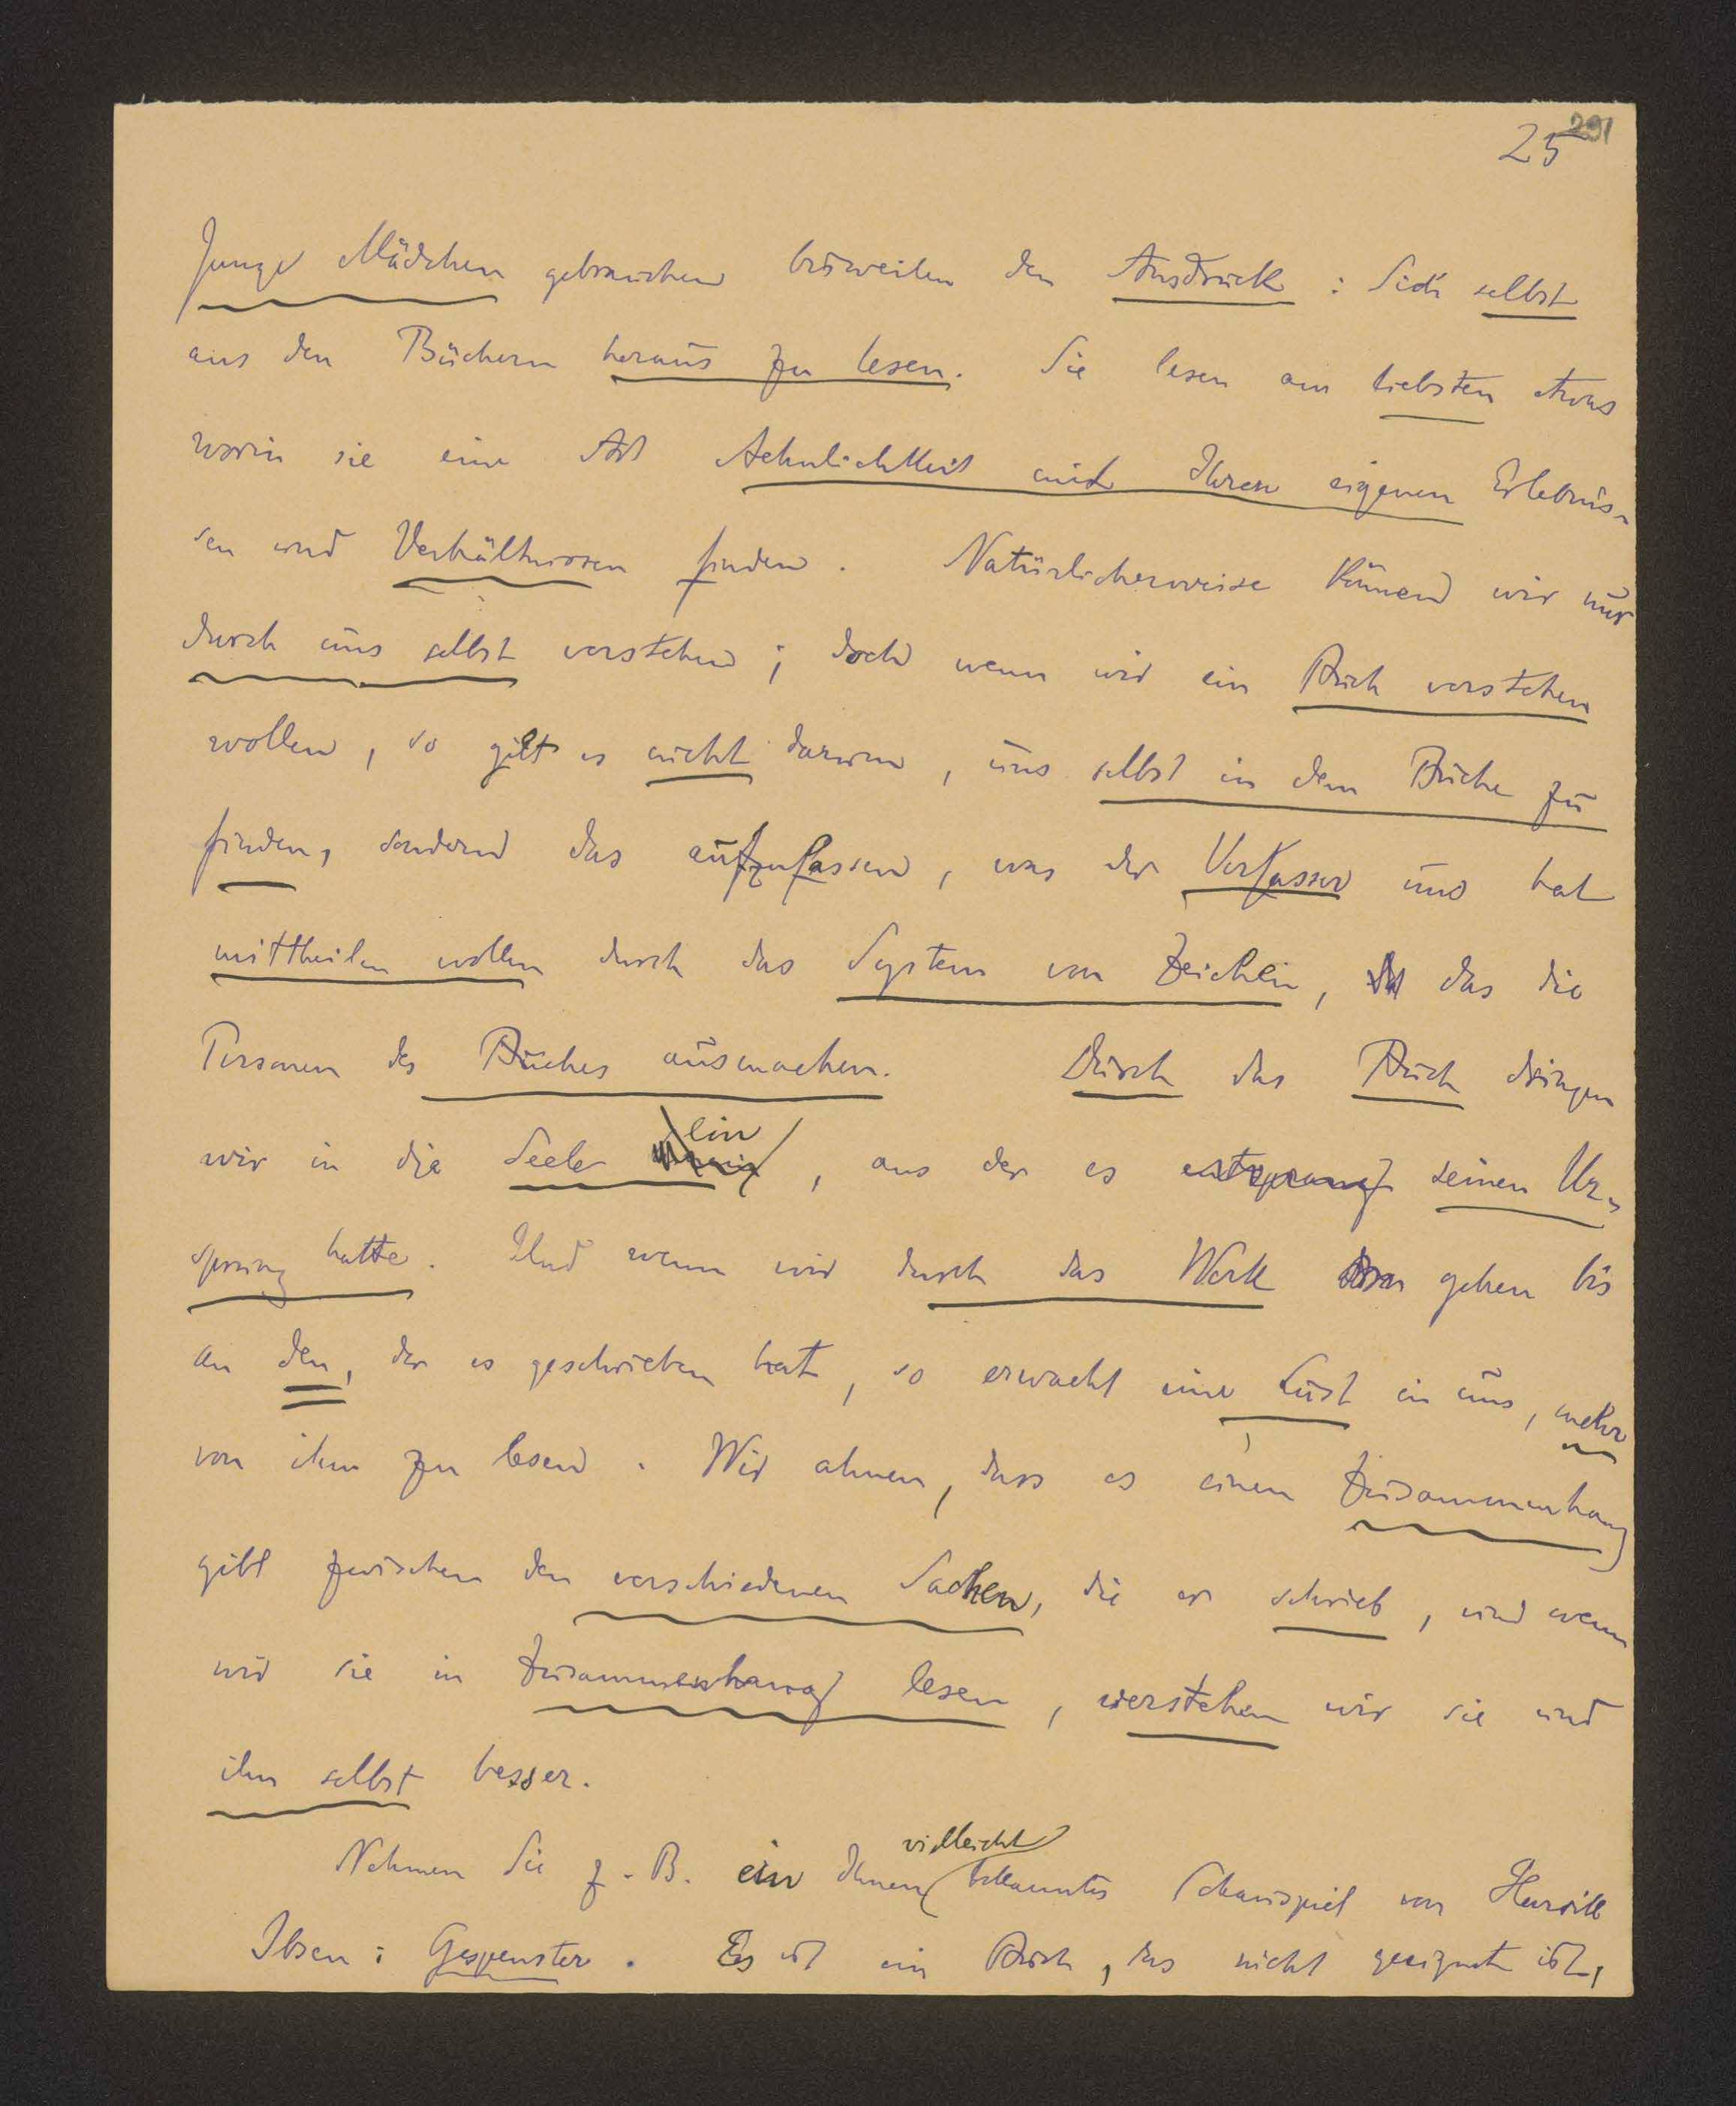 291
25
Junge Mädchen gebrauchen bisweilen den Ausdruck: Sich selbst
aus den Büchern heraus zu lesen. Sie lesen am liebsten etwas
worin sie eine Art Aehnlichkeit mit Ihren eigenen Erlebnis-
sen und Verhältnissen finden. Natürlicherweise können wir nur
durch uns selbst verstehen; doch wenn wir ein Buch verstehen
wollen, so gilt es nicht darum, uns selbst in dem Buche zu
finden, sondern das aufzufassen, was der Verfasser uns hat
mittheilen wollen durch das System von Zeichen, das die
Personen des Buches ausmachen. Durch das Buch dringen
wir in die Seele ein, aus der es entsprang seinen Ur-
sprung hatte. Und wenn wir durch das Werk gehen bis
an den, der es geschrieben hat, so erwacht eine Lust in uns, mehr
von ihm zu lesen. Wir ahnen, dass es einen Zusammenhang
gibt zwischen den verschiedenen Sachen, die er schrieb, und wenn
wir sie in Zusammenhang lesen, verstehen wir sie und
ihn selbst besser.
Nehmen Sie z. B. ein Ihnen vielleicht bekanntes Schauspiel von Henrik
Ibsen: Gespenster. Es ist ein Buch, das nicht geeignet ist,